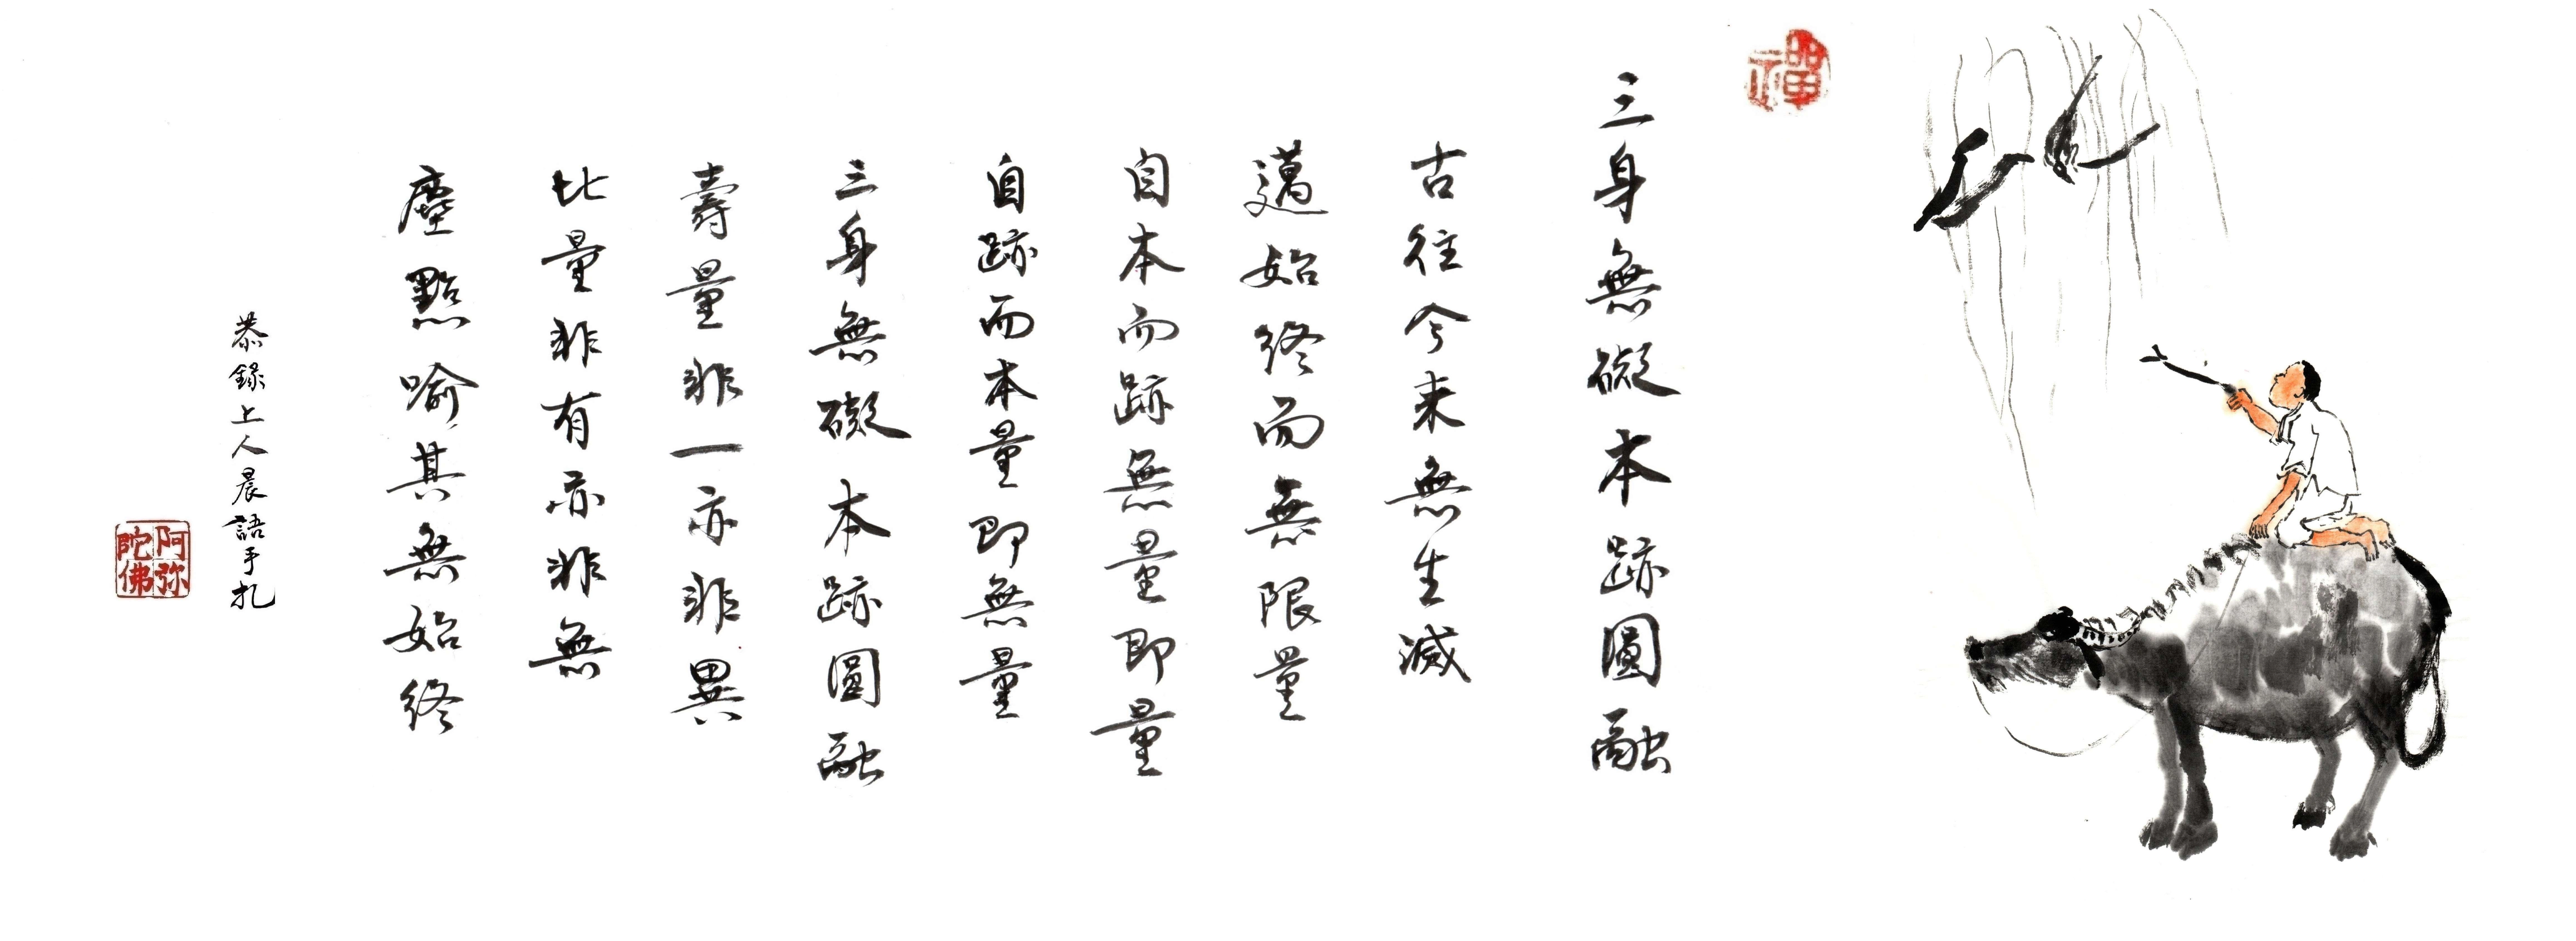 禪
三身無礙本跡圓融
古往今来無生滅
邁始終而無限量
自本而跡無量即量
自跡而本量即無量
三身無礙本跡圓融
壽量非一亦非異
比量非有亦非無
塵點喻其無始終
恭錄上人晨語手扎
阿弥
陀佛